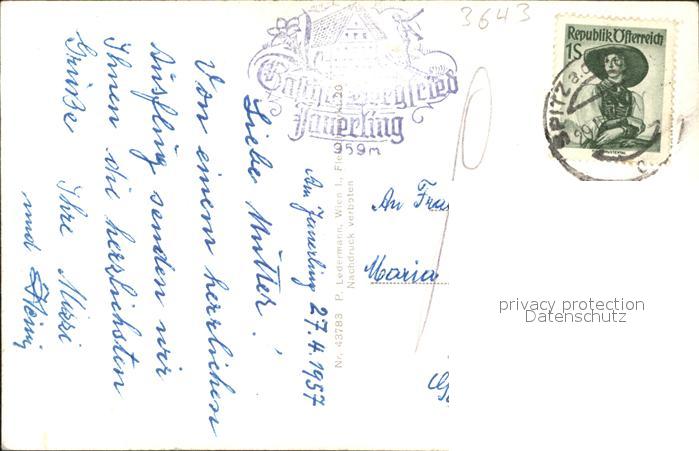 3643
Gasthof Bergfried
Jauerling
959 m
Republik Österreich
1S
SPITZ a.d.
Am Jauerling 27.4.1957
Liebe Mutter!
Von einem herrlichen
Ausflug senden wir
Ihnen die herzlichsten
Grüße Ihre Mizzi
und
Nr. 43783 P. Ledermann, Wien I.,
Nachdruck verboten
An
Maria
privacy protection
Datenschutz